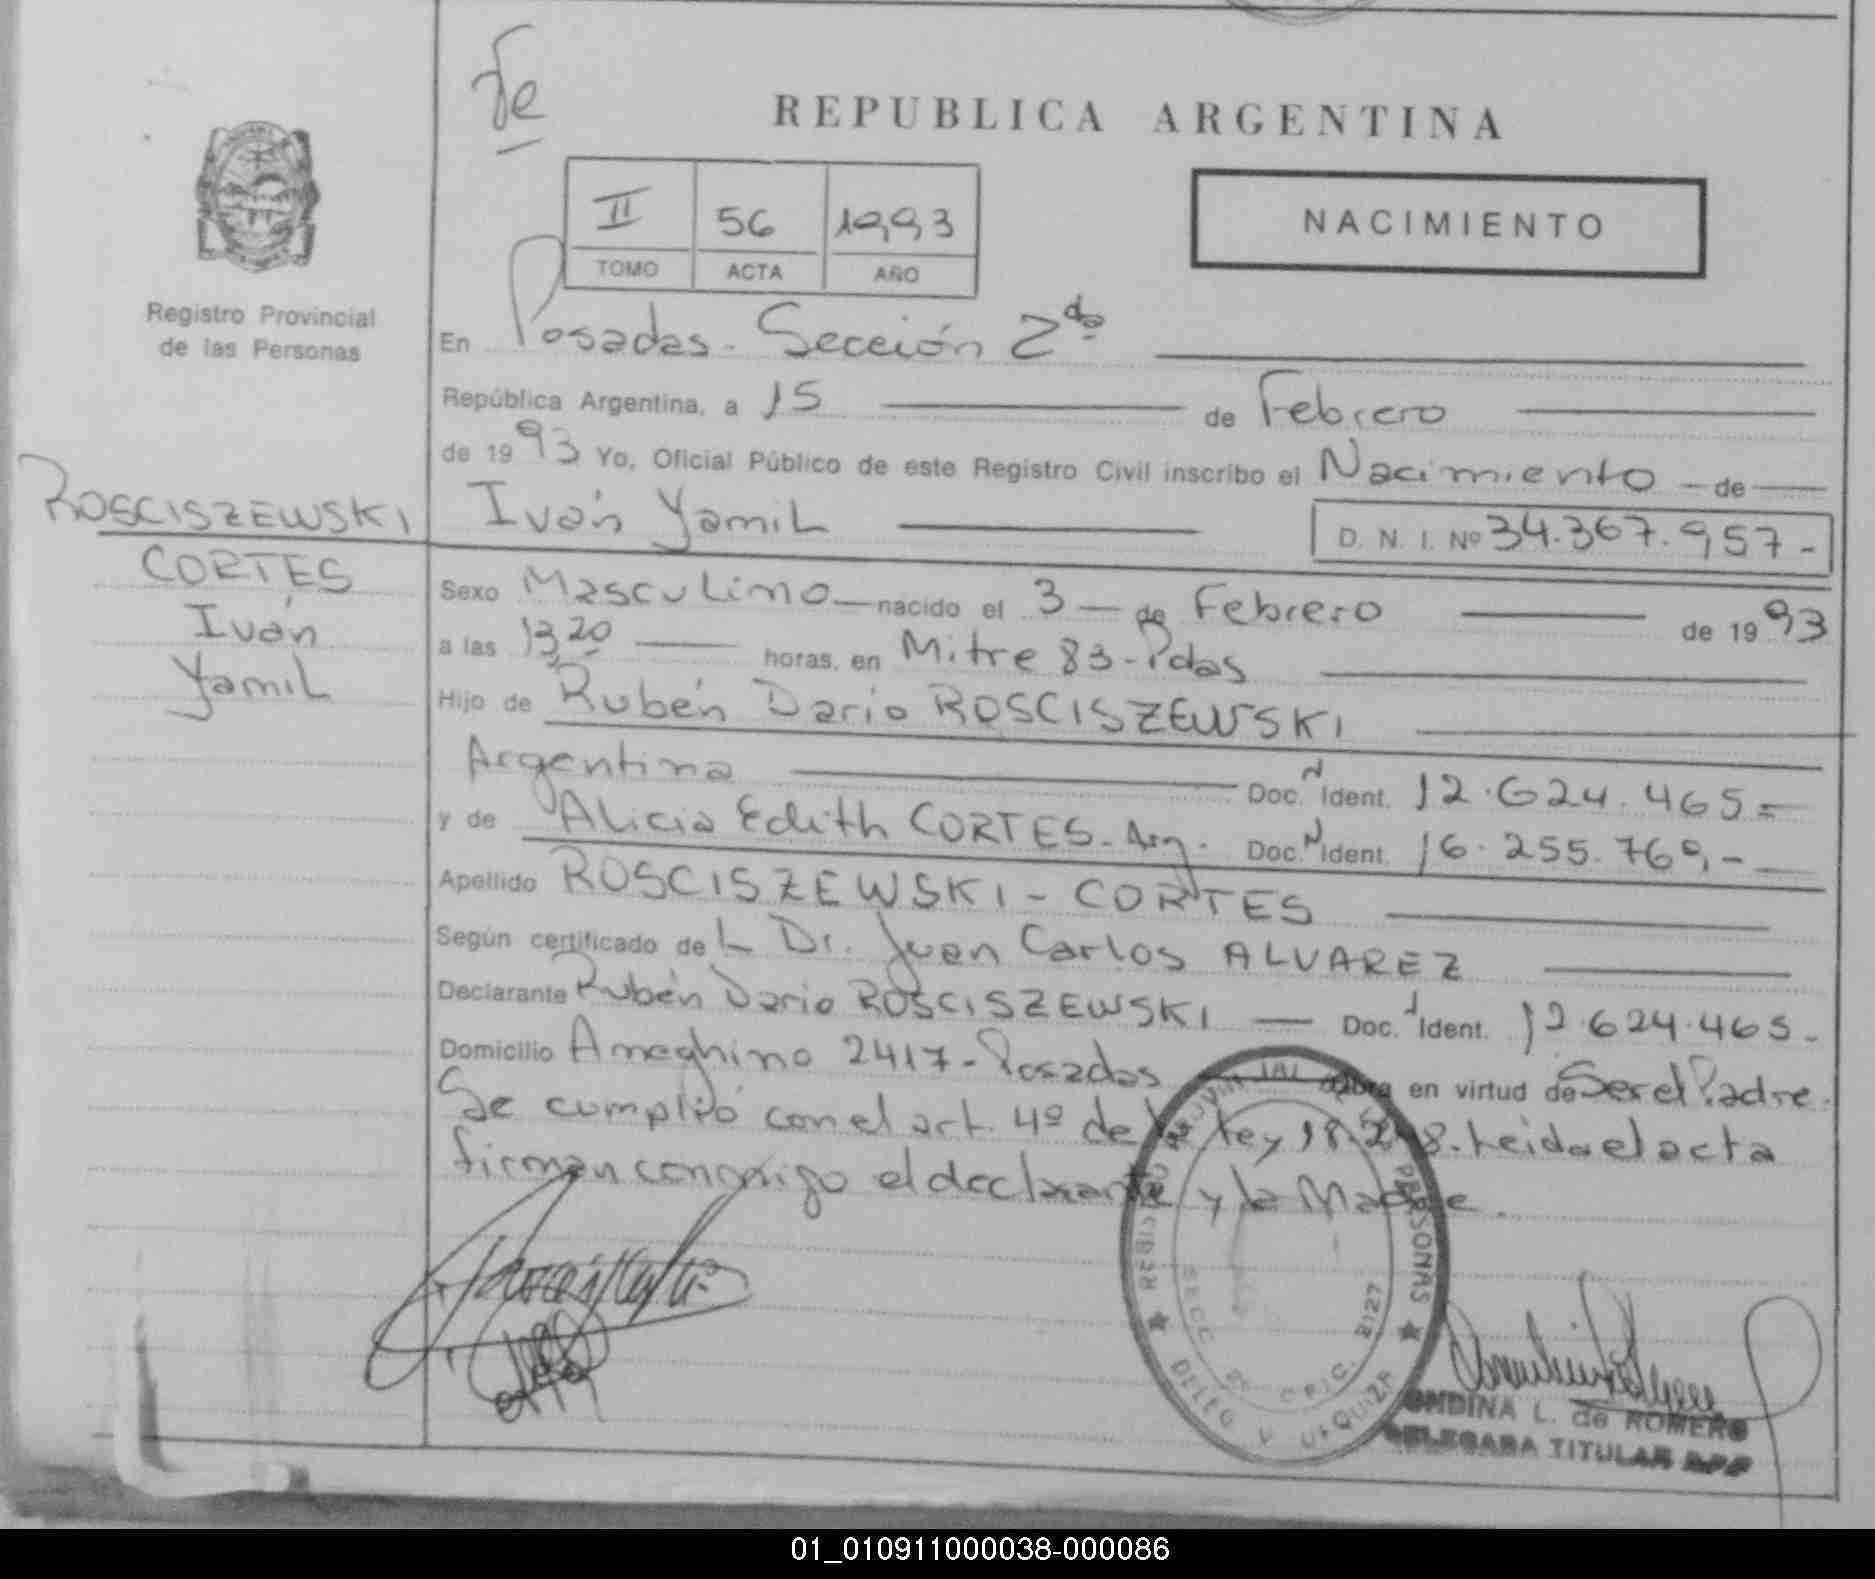 Fe
REPUBLICA ARGENTINA
II 56 1993
TOMO ACTA AÑO
NACIMIENTO
Registro Provincial
de las Personas
En Posadas. Sección 2da
República Argentina, a 15 de Febrero
de 1993 Yo, Oficial Público de este Registro Civil inscribo el Nacimiento de
ROSCISZEWSKI
CORTES
Iván
Yamil
Iván Yamil D. N. I. Nº 34.367.957-
Sexo Masculino nacido el 3 de Febrero de 1993
a las 13,20 horas, en Mitre 83-Pdas
Hijo de Rubén Dario ROSCISZEWSKI
Argentina Doc. N Ident. 12.624.465=
y de Alicia Edith CORTES. Arg. Doc. N Ident. 16.255.769,-
Apellido ROSCISZEWSKI - CORTES
Según certificado del Dr. Juan Carlos ALVAREZ
Declarante Rubén Dario ROSCISZEWSKI Doc. Ident. 12.624.465.
Domicilio Ameghino 2417-Posadas obra en virtud de Ser el Padre.
Se cumplió con el art. 4º de la Ley 18.248. Leida el acta
firman conmigo el declarante y la Madre.
REGISTRO PROVINCIAL PERSONAS
SECC 2º
DELEG V URQUIZA
ONDINA L. de ROMERO
DELEGADA TITULAR RPP
01_010911000038-000086